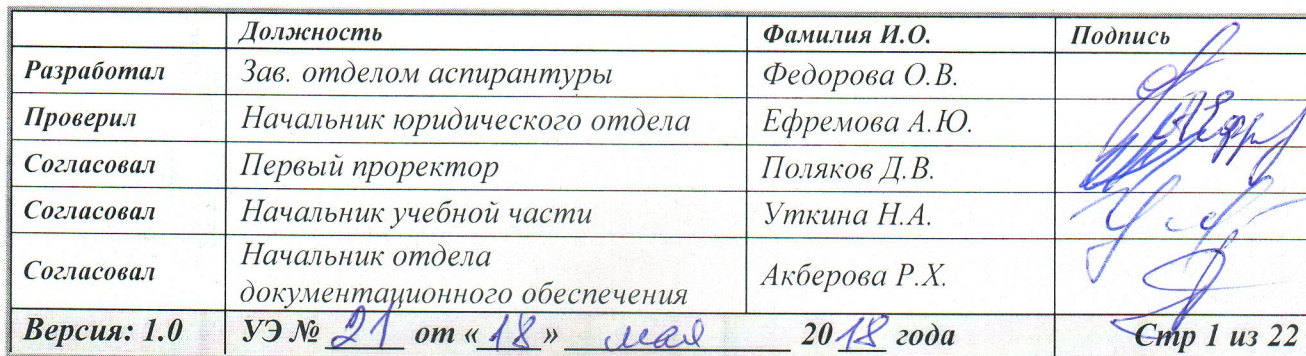 Должность Фамилия И.О. Подпись
Разработал Зав. отделом аспирантуры Федорова О.В.
Проверил Начальник юридического отдела Ефремова А.Ю.
Согласовал Первый проректор Поляков Д.В.
Согласовал Начальник учебной части Уткина Н.А.
Согласовал Начальник отдела
документационного обеспечения Акберова Р.Х.
Версия: 1.0 УЭ № 21 от «18» мая 2018 года Стр 1 из 22